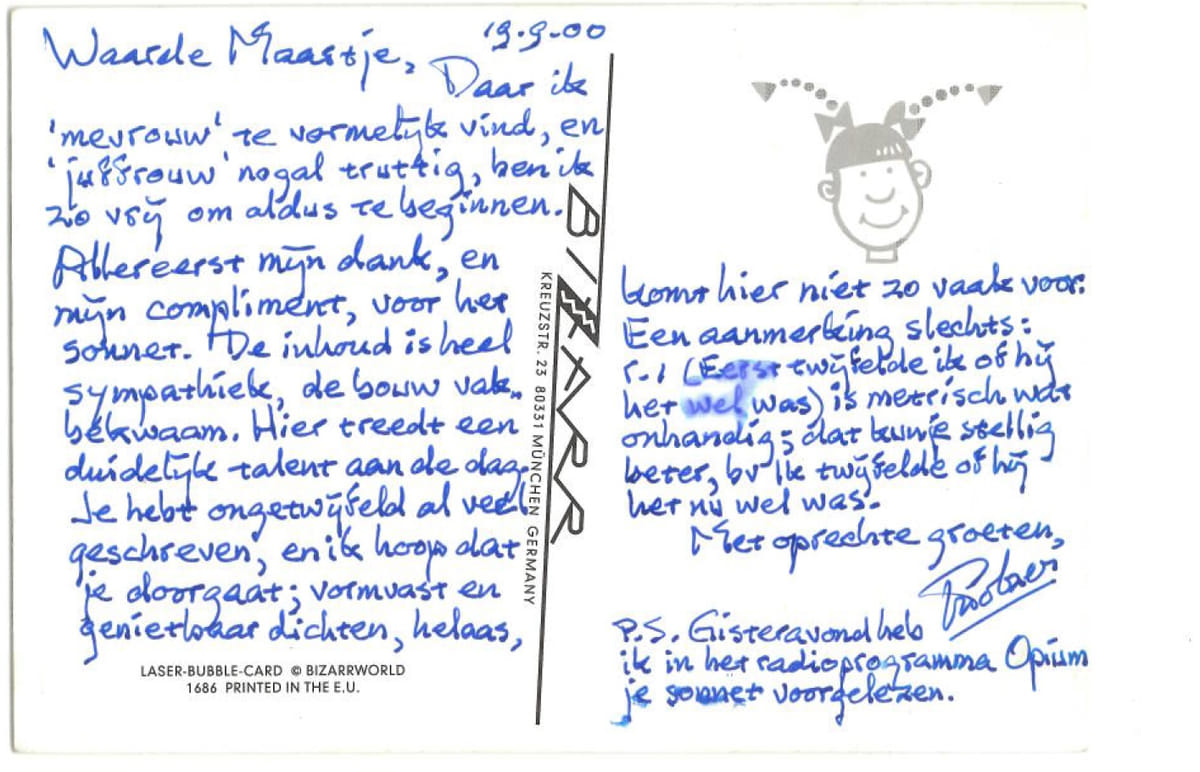 19-9-00
Waarde Maastje,
Daar ik
'mevrouw' te vormelijk vind, en
'juffrouw' nogal truttig, ben ik
zo vrij om aldus te beginnen.
Allereerst mijn dank, en
mijn compliment, voor het
sonnet. De inhoud is heel
sympathiek, de bouw vak-
bekwaam. Hier treedt een
duidelijk talent aan de dag.
Je hebt ongetwijfeld al veel
geschreven, en ik hoop dat
je doorgaat; vormvast en
genietbaar dichten, helaas,
LASER-BUBBLE-CARD © BIZARRWORLD
1686 PRINTED IN THE E.U.
BIZARR
KREUZSTR. 23 80331 MÜNCHEN GERMANY
komt hier niet zo vaak voor.
Een aanmerking slechts:
r.1 (Eerst twijfelde ik of hij
het wel was) is metrisch wat
onhandig; dat kun je stellig
beter, bv Ik twijfelde of hij
het nu wel was.
Met oprechte groeten,
P.S. Gisteravond heb
ik in het radioprogramma Opium
je sonnet voorgelezen.